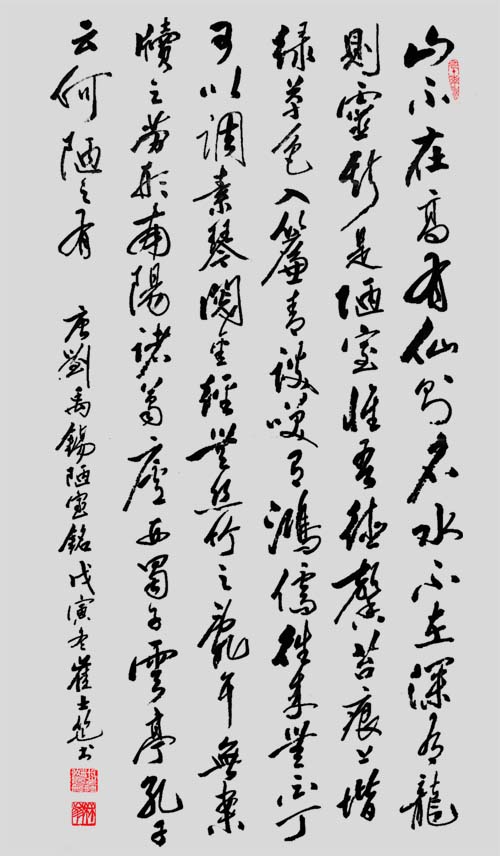 山不在高有仙則名水不在深有龍
則靈斯是陋室惟吾德馨苔痕上堦
緑草色入簾青談咲有鴻儒往來無白丁
可以調素琴閱金經無絲竹之亂耳無案
牘之勞形南陽諸葛廬西蜀子雲亭孔子
云何陋之有
唐劉禹錫陋室銘戊寅冬崔士書